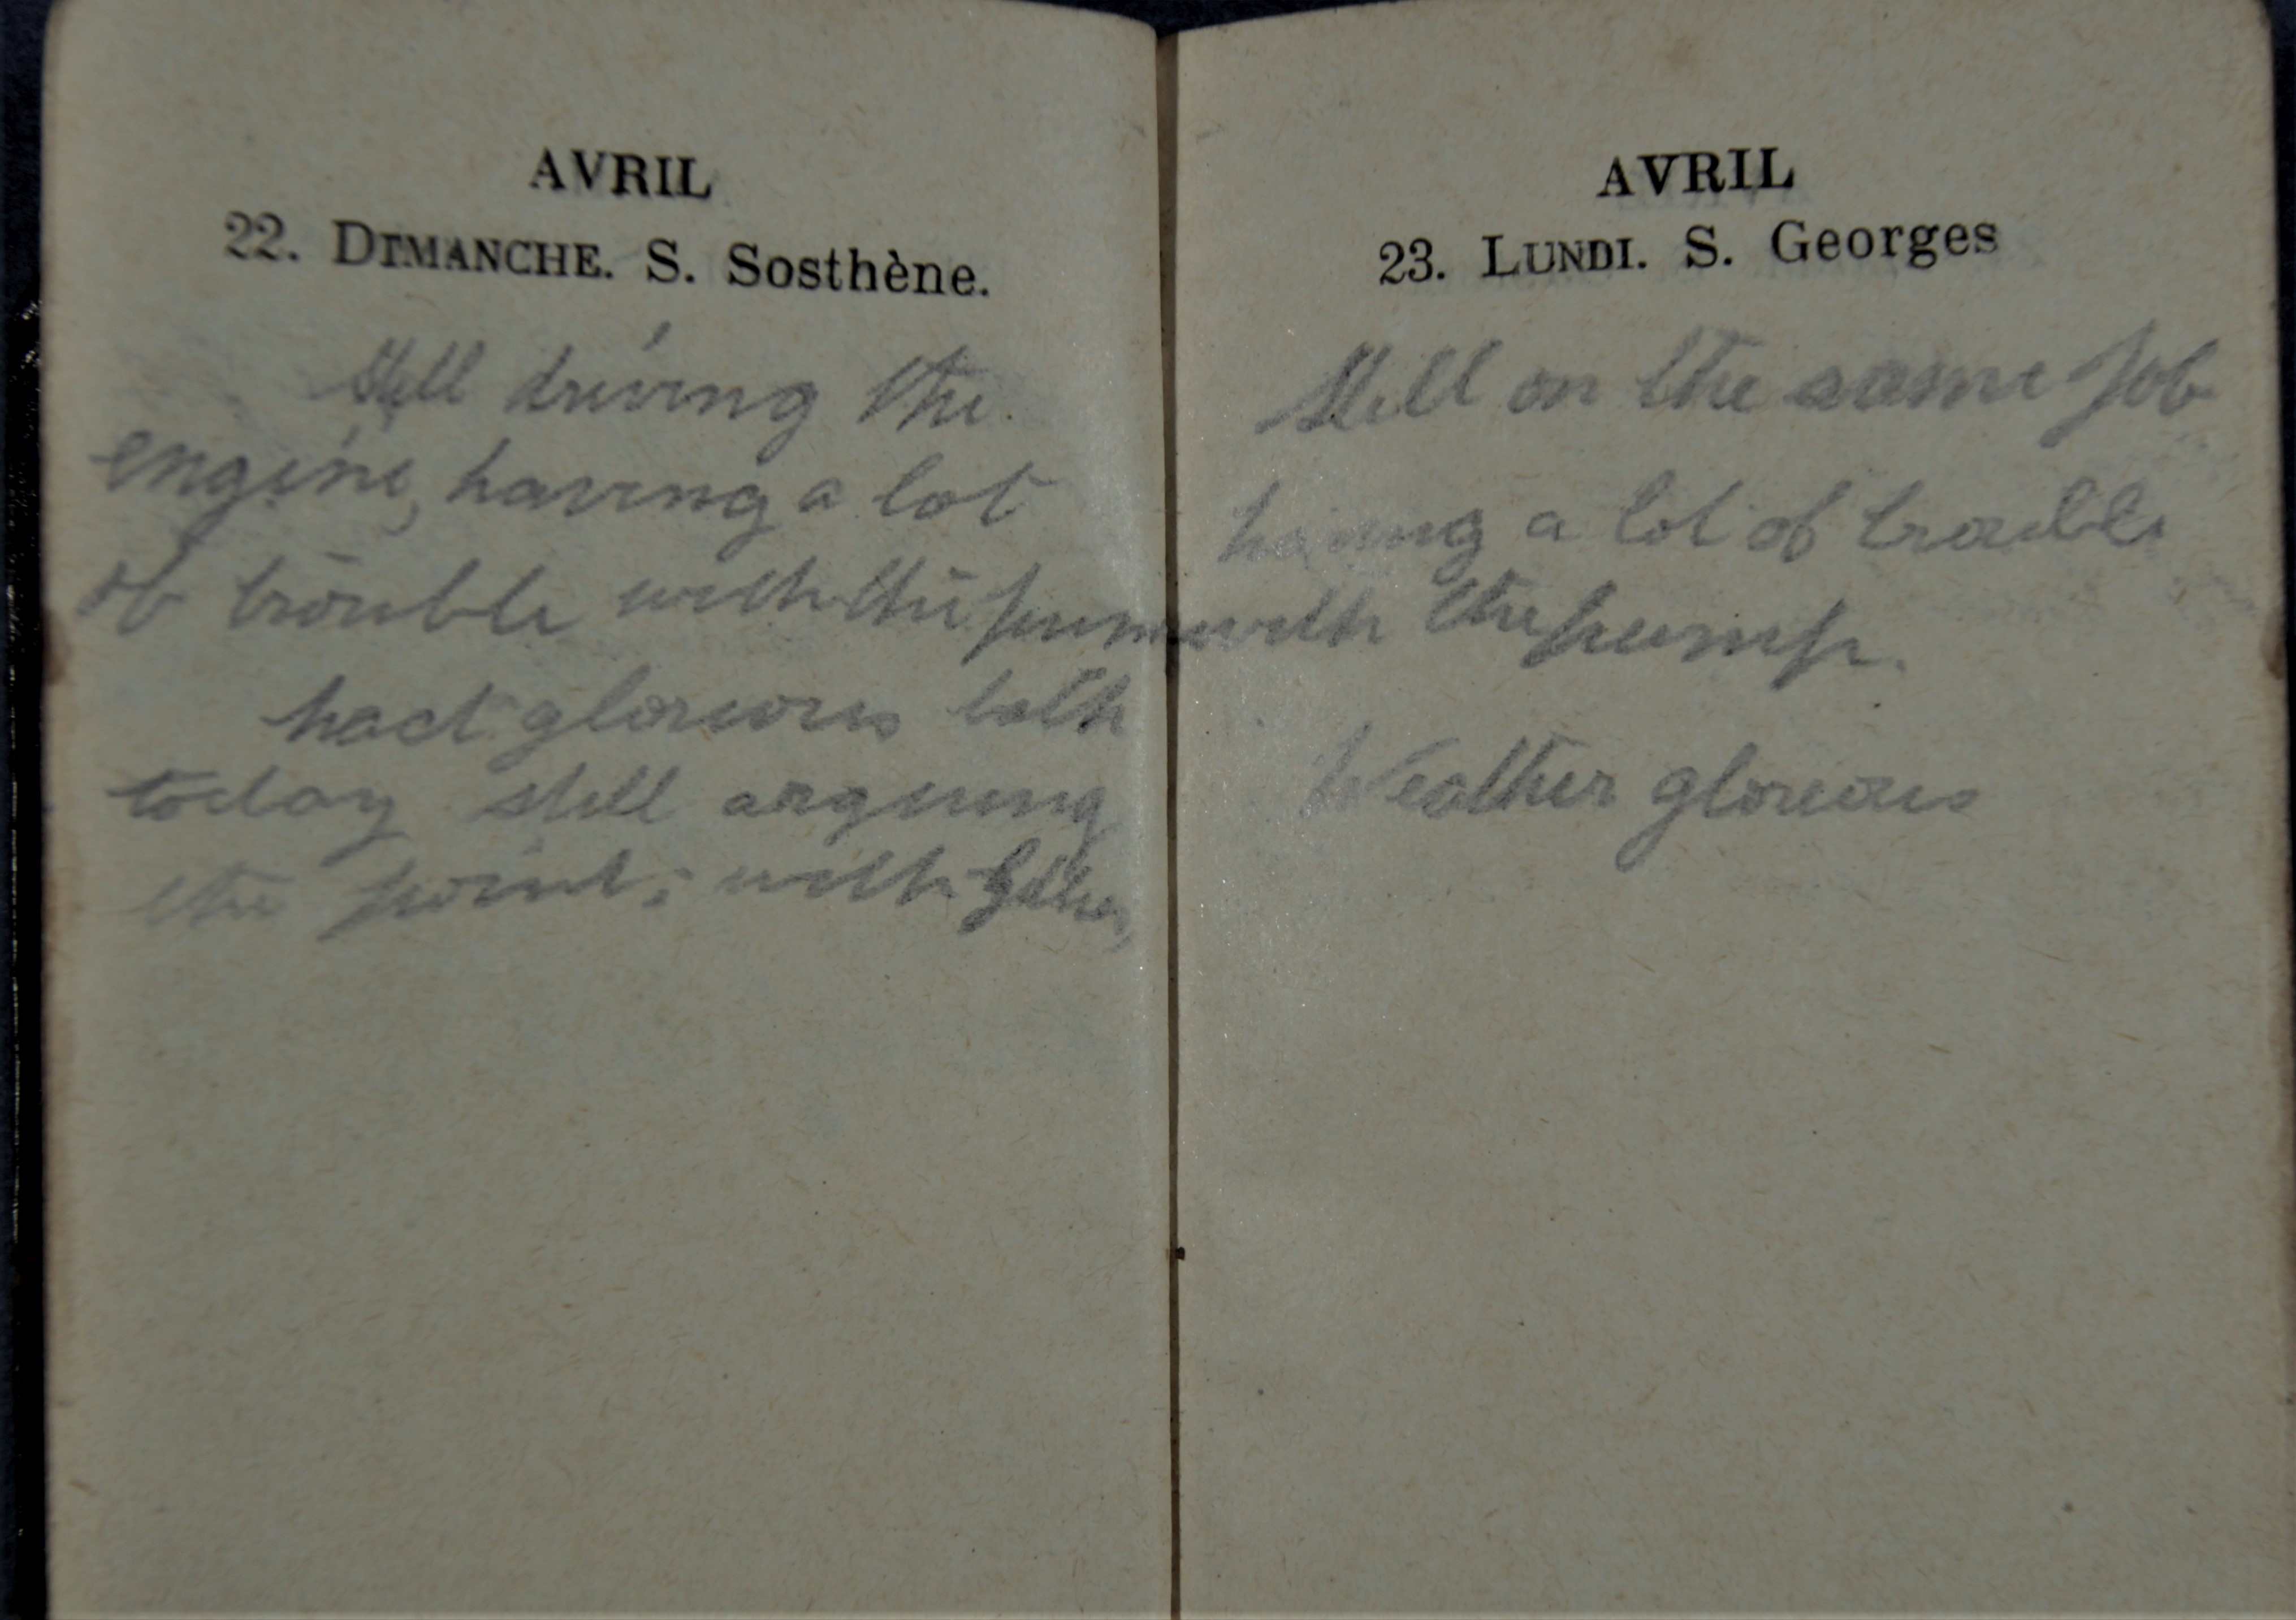 AVRIL
22. DIMANCHE. S. Sosthène.
Still driving the
engine, having a lot
of trouble with the pum
had glorious
today still arguing
the point; with
AVRIL
23. LUNDI. S. Georges
Still on the same job
having a lot of trouble
with the pump.
Weather glorious